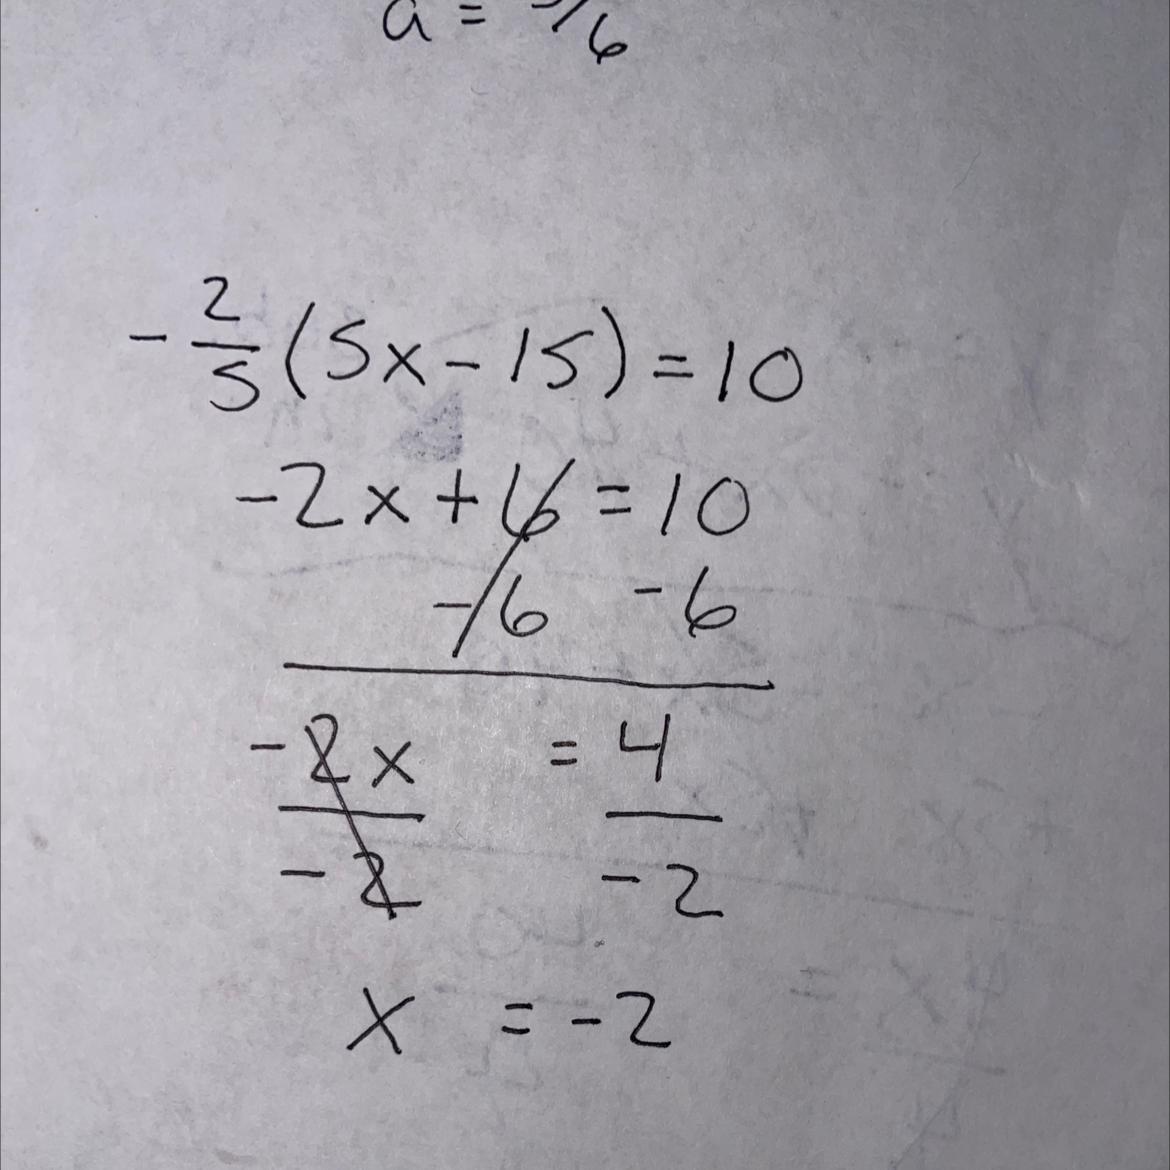 a = /6
-2/5(5x-15)=10
-2x+6=10
-6 -6
-2x = 4
-2 -2
x = -2